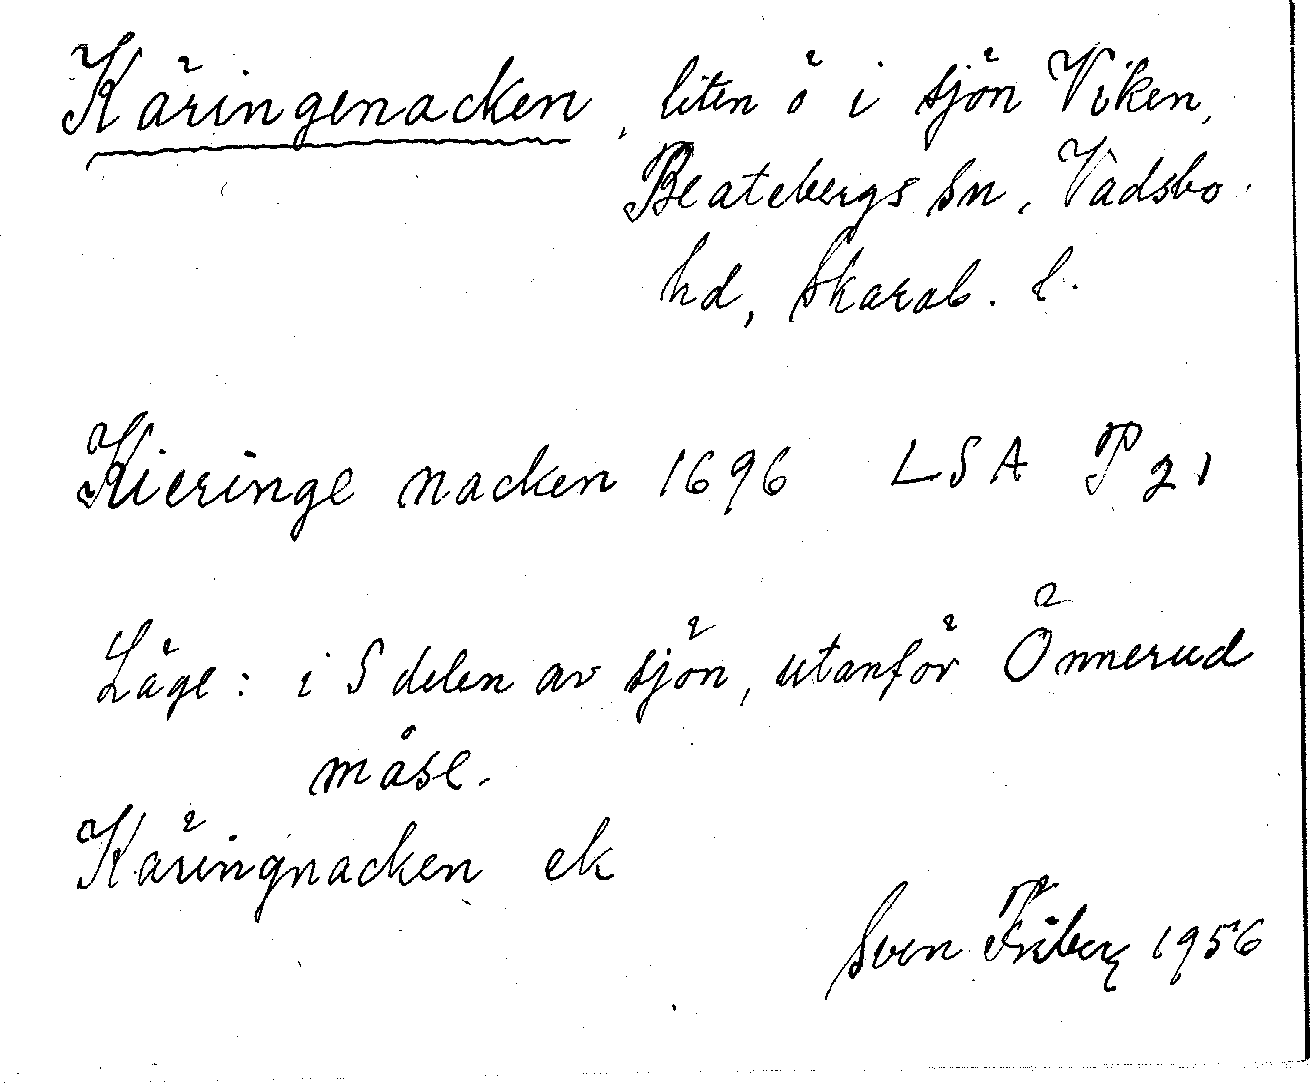 Käringenacken, liten ö i sjön Viken,
Beatebergs sn, Vadsbo
hd, Skarab. l.
Kieringe nacken 1696 LSA P 21
Läge: i S delen av sjön, utanför Önnerud
måse.
Käringnacken ek
Sven Friberg 1956